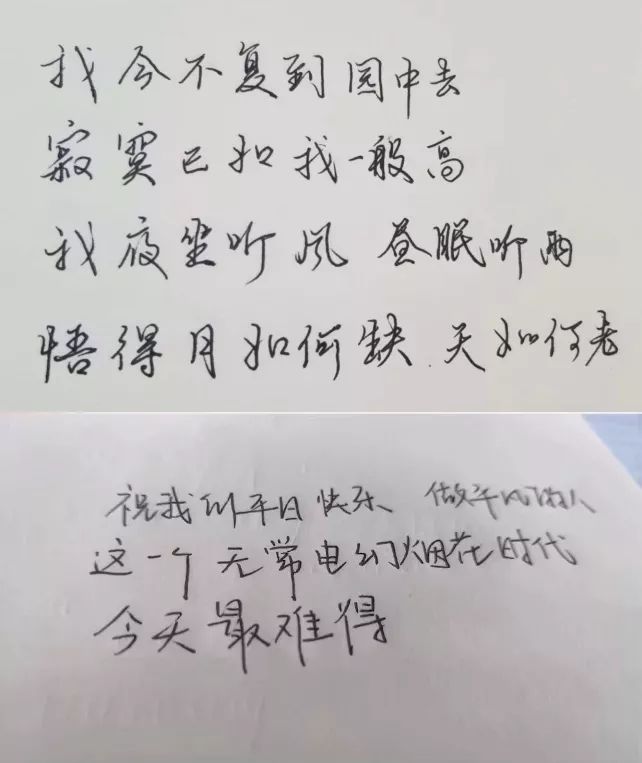 我今不复到园中去
寂寞已如我一般高
我夜坐听风 昼眠听雨
悟得月如何缺 天如何老
祝我们平日快乐、做平凡的人
这一个无常电幻烟花时代
今天最难得